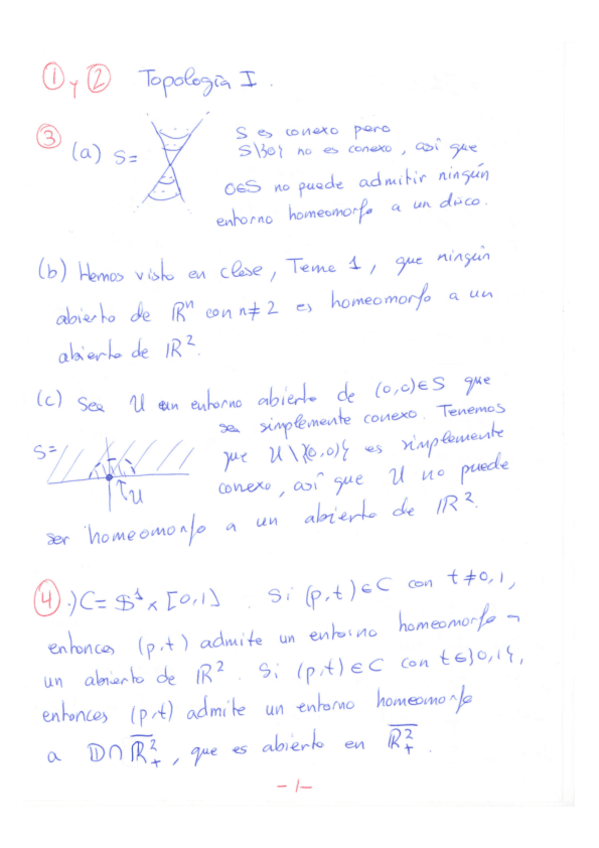 ① y ② Topología I.
③ (a) S= S es conexo pero
S\{0} no es conexo, así que
0∈S no puede admitir ningún
entorno homeomorfo a un disco.
(b) Hemos visto en clase, Tema 1, que ningún
abierto de ℝⁿ con n≠2 es homeomorfo a un
abierto de ℝ².
(c) Sea U un entorno abierto de (0,0)∈S que
S= sea simplemente conexo. Tenemos
que U\{(0,0)} es simplemente
U
conexo, así que U no puede
ser homeomorfo a un abierto de ℝ².
④ .) C= 𝕊¹×[0,1]. Si (p,t)∈C con t≠0,1,
entonces (p,t) admite un entorno homeomorfo a
un abierto de ℝ². Si (p,t)∈C con t∈{0,1},
entonces (p,t) admite un entorno homeomorfo
a 𝔻∩\overline{ℝ²₊}, que es abierto en \overline{ℝ²₊}.
-1-